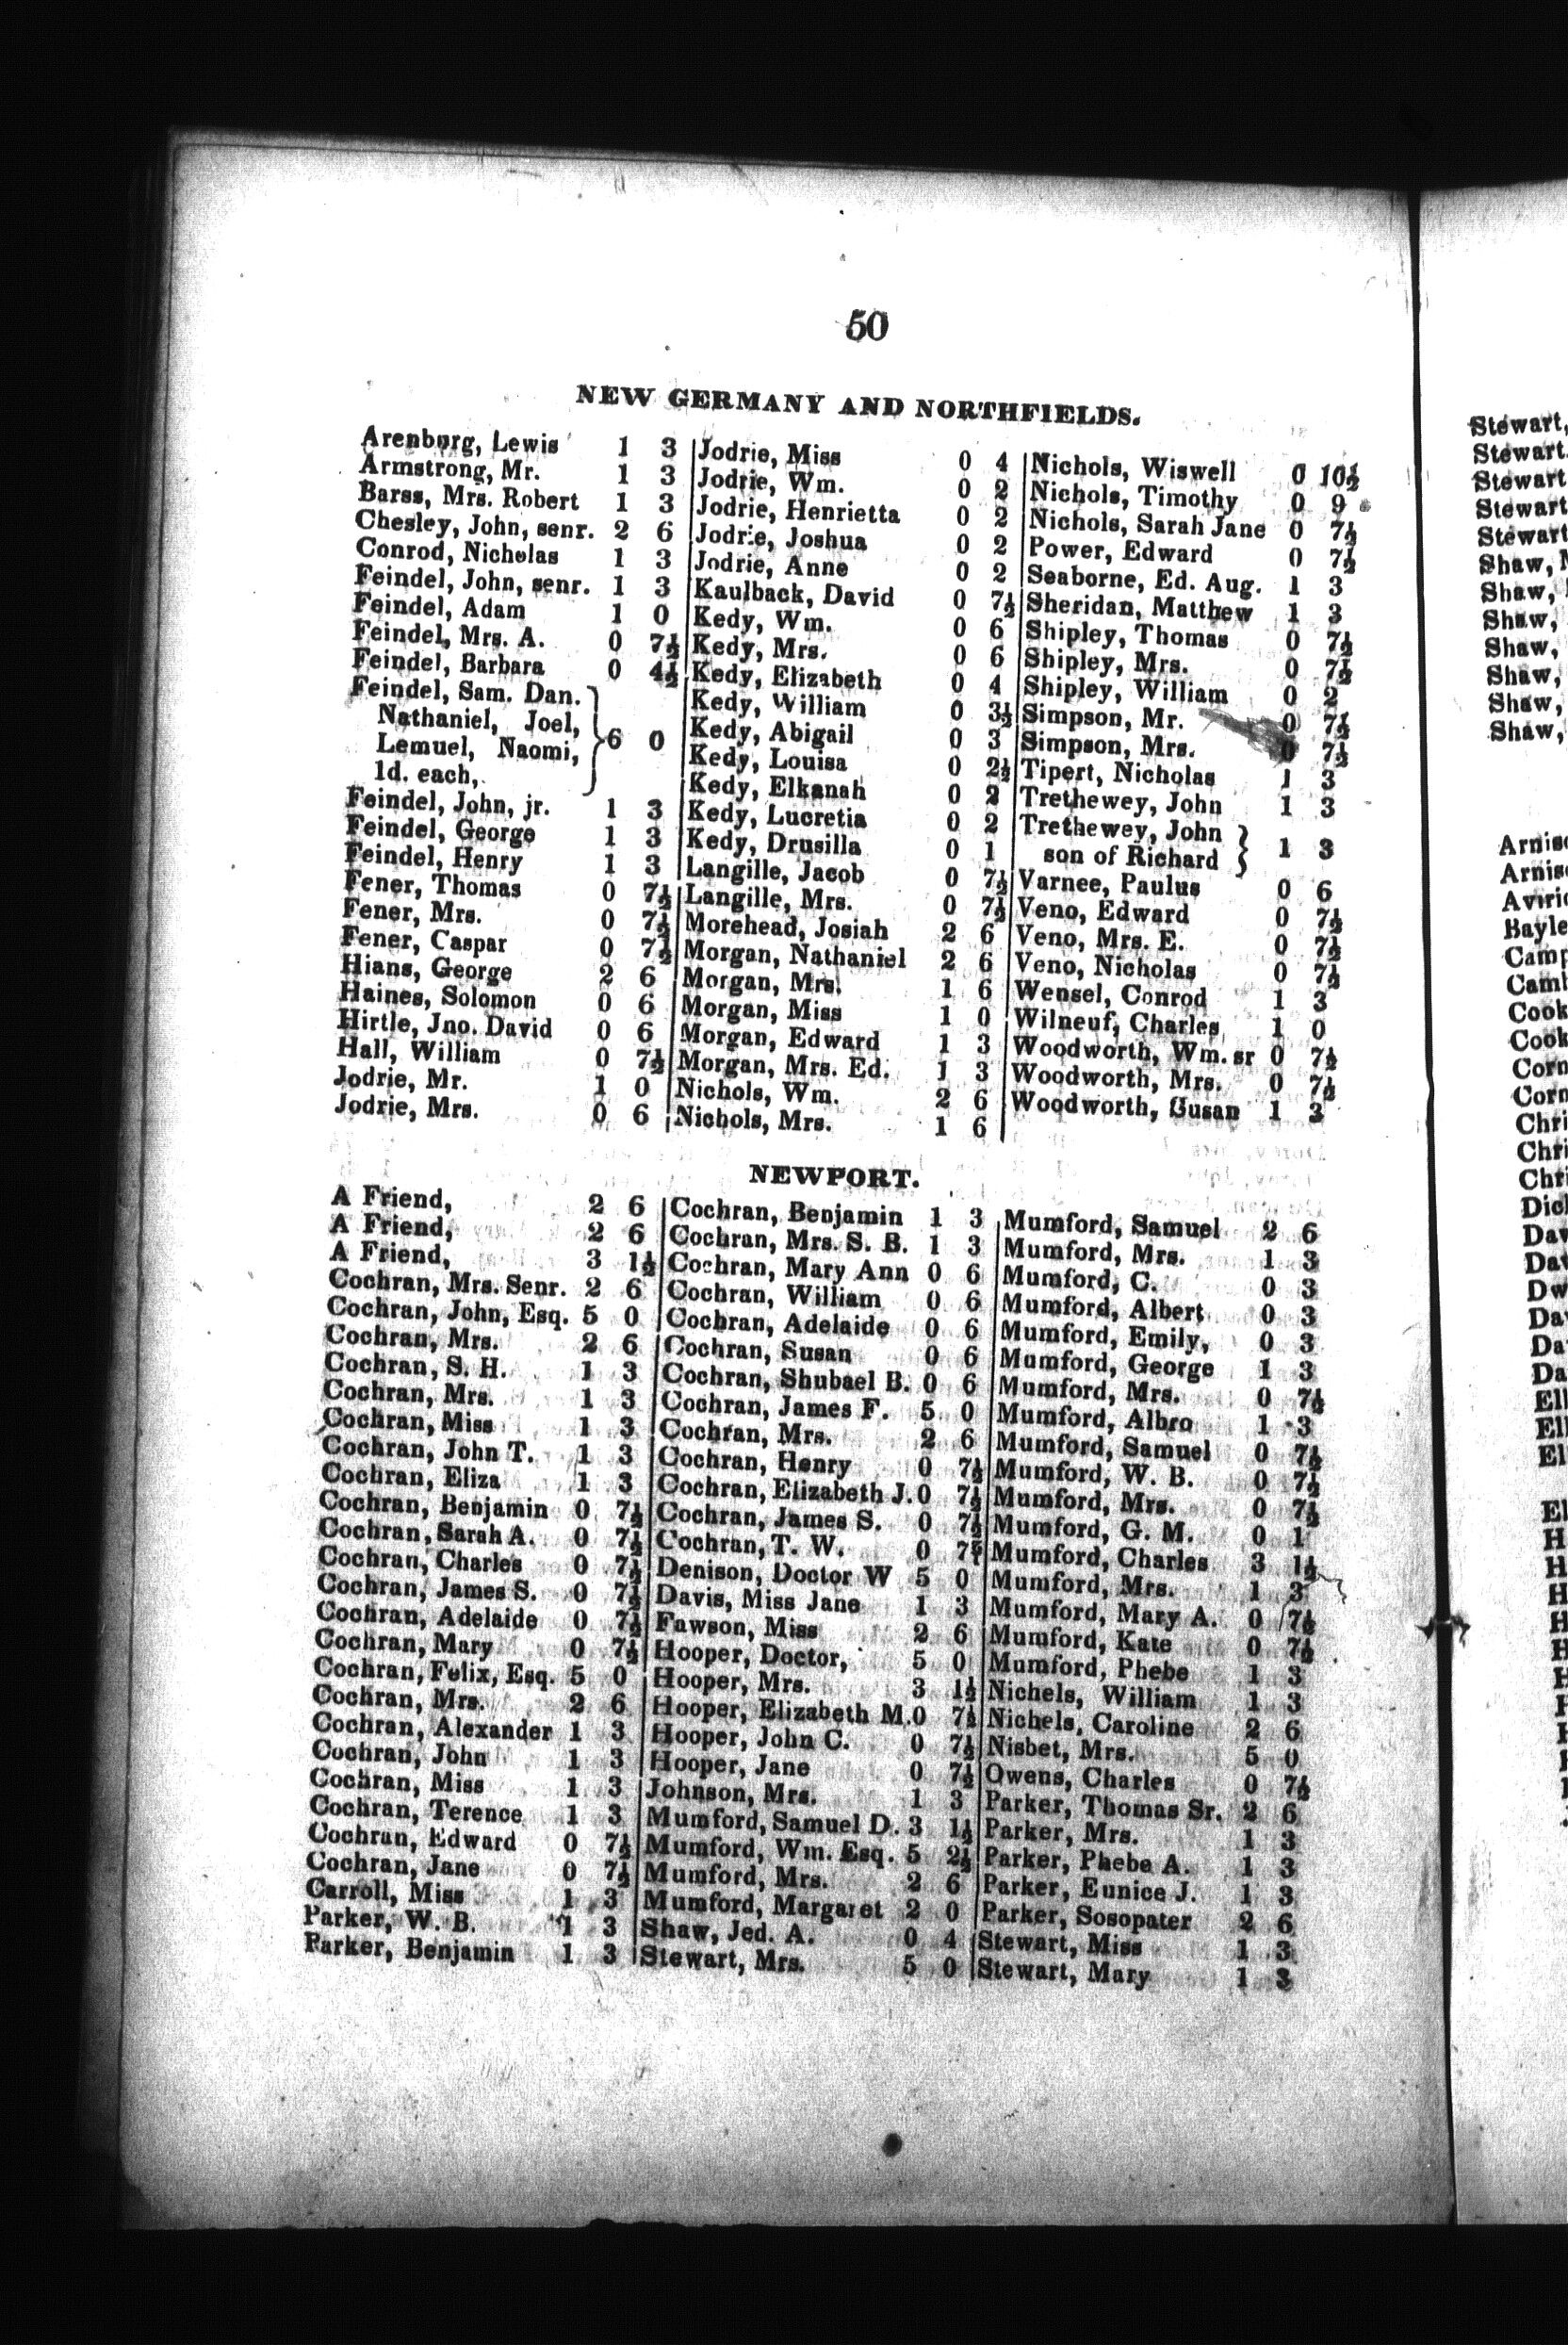 50
NEW GERMANY AND NORTHFIELDS.
Arenburg, Lewis 1 3
Armstrong, Mr. 1 3
Barss, Mrs. Robert 1 3
Chesley, John, senr. 2 6
Conrod, Nicholas 1 3
Feindel, John, senr. 1 3
Feindel, Adam 1 0
Feindel, Mrs. A. 0 7½
Feindel, Barbara 0 4½
Feindel, Sam. Dan.
Nathaniel, Joel,
Lemuel, Naomi, } 6 0
1d. each,
Feindel, John, jr. 1 3
Feindel, George 1 3
Feindel, Henry 1 3
Fener, Thomas 0 7½
Fener, Mrs. 0 7½
Fener, Caspar 0 7½
Hians, George 2 6
Haines, Solomon 0 6
Hirtle, Jno. David 0 6
Hall, William 0 7½
Jodrie, Mr. 1 0
Jodrie, Mrs. 0 6
Jodrie, Miss 0 4
Jodrie, Wm. 0 2
Jodrie, Henrietta 0 2
Jodrie, Joshua 0 2
Jodrie, Anne 0 2
Kaulback, David 0 7½
Kedy, Wm. 0 6
Kedy, Mrs. 0 6
Kedy, Elizabeth 0 4
Kedy, William 0 3½
Kedy, Abigail 0 3
Kedy, Louisa 0 2½
Kedy, Elkanah 0 2
Kedy, Lucretia 0 2
Kedy, Drusilla 0 1
Langille, Jacob 0 7½
Langille, Mrs. 0 7½
Morehead, Josiah 2 6
Morgan, Nathaniel 2 6
Morgan, Mrs. 1 6
Morgan, Miss 1 0
Morgan, Edward 1 3
Morgan, Mrs. Ed. 1 3
Nichols, Wm. 2 6
Nichols, Mrs. 1 6
Nichols, Wiswell 0 10½
Nichols, Timothy 0 9
Nichols, Sarah Jane 0 7½
Power, Edward 0 7½
Seaborne, Ed. Aug. 1 3
Sheridan, Matthew 1 3
Shipley, Thomas 0 7½
Shipley, Mrs. 0 7½
Shipley, William 0 2
Simpson, Mr. 0 7½
Simpson, Mrs. 0 7½
Tipert, Nicholas 1 3
Trethewey, John 1 3
Trethewey, John
son of Richard } 1 3
Varnee, Paulus 0 6
Veno, Edward 0 7½
Veno, Mrs. E. 0 7½
Veno, Nicholas 0 7½
Wensel, Conrod 1 3
Wilneuf, Charles 1 0
Woodworth, Wm. sr 0 7½
Woodworth, Mrs. 0 7½
Woodworth, Susan 1 3
NEWPORT.
A Friend, 2 6
A Friend, 2 6
A Friend, 3 1½
Cochran, Mrs. Senr. 2 6
Cochran, John, Esq. 5 0
Cochran, Mrs. 2 6
Cochran, S. H. 1 3
Cochran, Mrs. 1 3
Cochran, Miss 1 3
Cochran, John T. 1 3
Cochran, Eliza 1 3
Cochran, Benjamin 0 7½
Cochran, Sarah A. 0 7½
Cochran, Charles 0 7½
Cochran, James S. 0 7½
Cochran, Adelaide 0 7½
Cochran, Mary 0 7½
Cochran, Felix, Esq. 5 0
Cochran, Mrs. 2 6
Cochran, Alexander 1 3
Cochran, John 1 3
Cochran, Miss 1 3
Cochran, Terence 1 3
Cochran, Edward 0 7½
Cochran, Jane 0 7½
Carroll, Miss 1 3
Parker, W. B. 1 3
Parker, Benjamin 1 3
Cochran, Benjamin 1 3
Cochran, Mrs. S. B. 1 3
Cochran, Mary Ann 0 6
Cochran, William 0 6
Cochran, Adelaide 0 6
Cochran, Susan 0 6
Cochran, Shubael B. 0 6
Cochran, James F. 5 0
Cochran, Mrs. 2 6
Cochran, Henry 0 7½
Cochran, Elizabeth J. 0 7½
Cochran, James S. 0 7½
Cochran, T. W. 0 7½
Denison, Doctor W 5 0
Davis, Miss Jane 1 3
Fawson, Miss 2 6
Hooper, Doctor, 5 0
Hooper, Mrs. 3 1½
Hooper, Elizabeth M. 0 7½
Hooper, John C. 0 7½
Hooper, Jane 0 7½
Johnson, Mrs. 1 3
Mumford, Samuel D. 3 1½
Mumford, Wm. Esq. 5 2½
Mumford, Mrs. 2 6
Mumford, Margaret 2 0
Shaw, Jed. A. 0 4
Stewart, Mrs. 5 0
Mumford, Samuel 2 6
Mumford, Mrs. 1 3
Mumford, C. 0 3
Mumford, Albert 0 3
Mumford, Emily, 0 3
Mumford, George 1 3
Mumford, Mrs. 0 7½
Mumford, Albro 1 3
Mumford, Samuel 0 7½
Mumford, W. B. 0 7½
Mumford, Mrs. 0 7½
Mumford, G. M. 0 1
Mumford, Charles 3 1½
Mumford, Mrs. 1 3
Mumford, Mary A. 0 7½
Mumford, Kate 0 7½
Mumford, Phebe 1 3
Nichels, William 1 3
Nichels, Caroline 2 6
Nisbet, Mrs. 5 0
Owens, Charles 0 7½
Parker, Thomas Sr. 2 6
Parker, Mrs. 1 3
Parker, Phebe A. 1 3
Parker, Eunice J. 1 3
Parker, Sosopater 2 6
Stewart, Miss 1 3
Stewart, Mary 1 3
Stewart,
Stewart.
Stewart
Stewart
Stewart
Shaw,
Shaw,
Shaw,
Shaw,
Shaw,
Shaw,
Shaw,